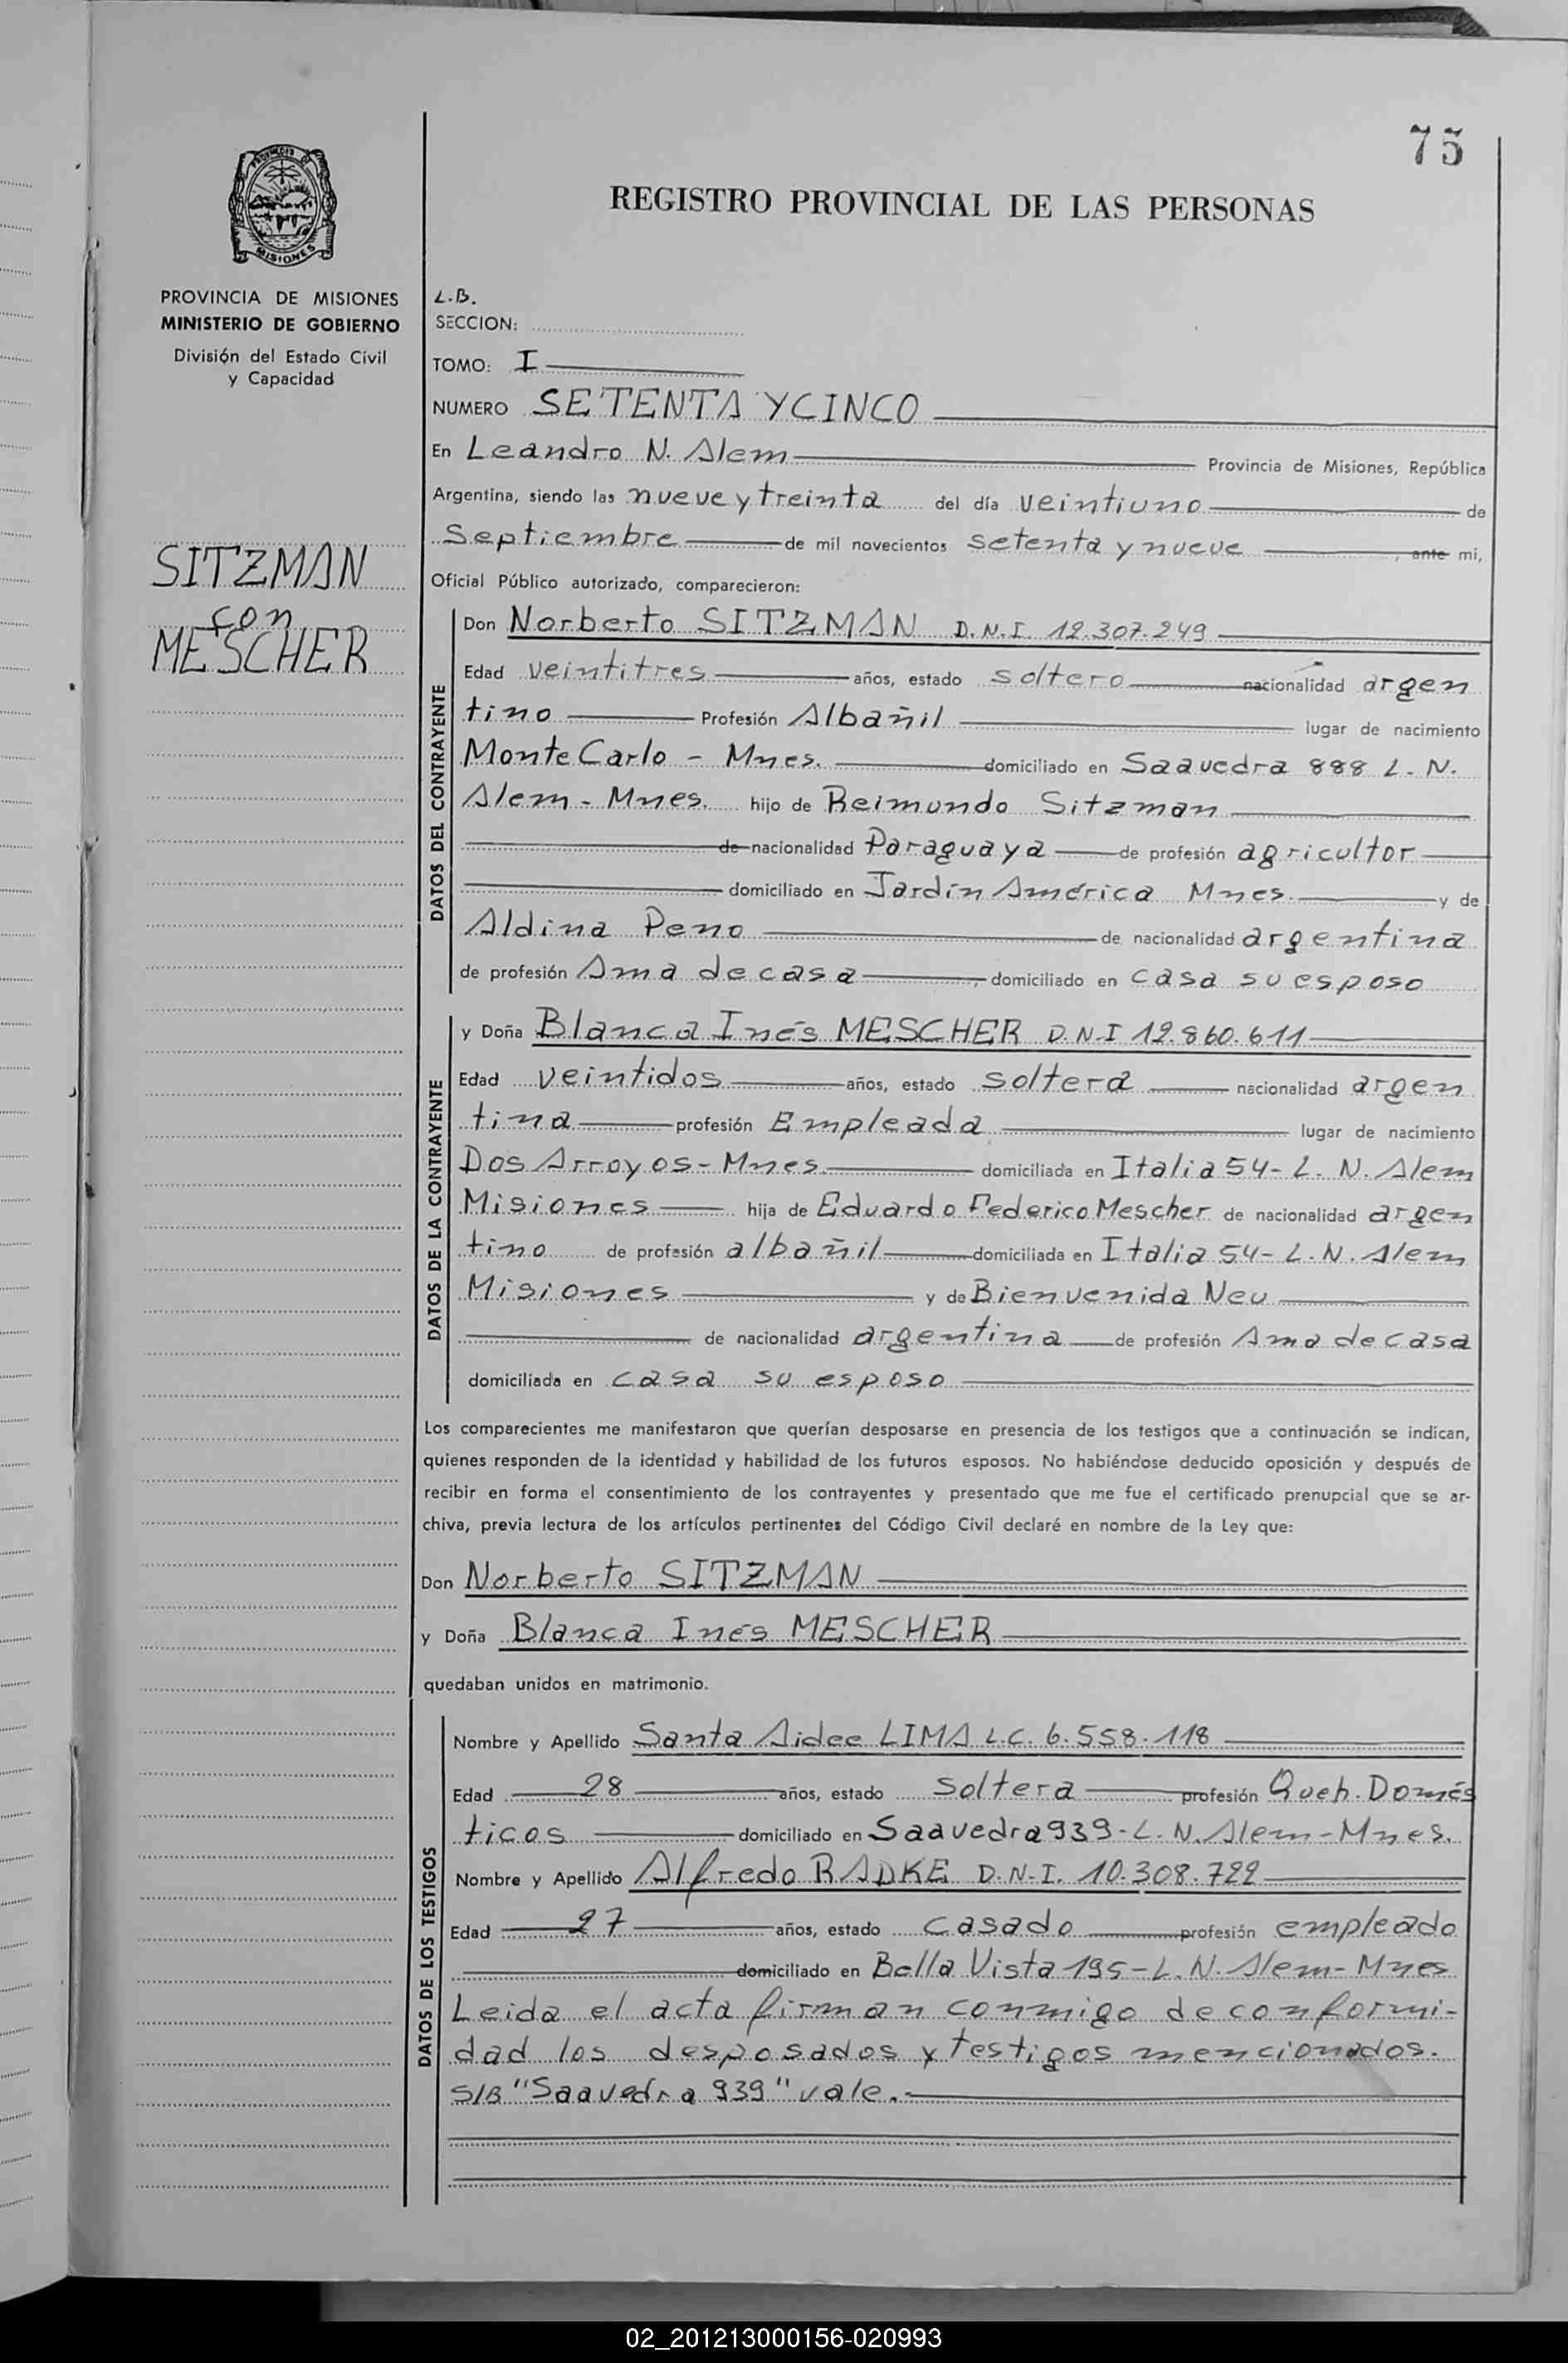 75
REGISTRO PROVINCIAL DE LAS PERSONAS
MISIONES
PROVINCIA DE MISIONES
MINISTERIO DE GOBIERNO
División del Estado Civil
y Capacidad
SITZMAN
con
MESCHER
L.B.
SECCION:
TOMO: I
NUMERO SETENTA Y CINCO
En Leandro N. Alem Provincia de Misiones, República
Argentina, siendo las nueve y treinta del día veintiuno de
Septiembre de mil novecientos setenta y nueve, ante mi,
Oficial Público autorizado, comparecieron:
DATOS DEL CONTRAYENTE
Don Norberto SITZMAN D.N.I. 12.307.249
Edad veintitres años, estado soltero nacionalidad argen
tino Profesión Albañil lugar de nacimiento
Monte Carlo - Mnes. domiciliado en Saavedra 888 L. N.
Alem - Mnes. hijo de Reimundo Sitzman
de nacionalidad Paraguaya de profesión agricultor
domiciliado en Jardín América Mnes. y de
Aldina Peno de nacionalidad argentina
de profesión Ama de casa, domiciliado en casa su esposo
DATOS DE LA CONTRAYENTE
y Doña Blanca Inés MESCHER D.N.I 12.860.611
Edad veintidos años, estado soltera nacionalidad argen
tina profesión Empleada lugar de nacimiento
Dos Arroyos - Mnes. domiciliada en Italia 54 - L. N. Alem
Misiones hija de Eduardo Federico Mescher de nacionalidad argen
tino de profesión albañil domiciliada en Italia 54 - L. N. Alem
Misiones y de Bienvenida Neu
de nacionalidad argentina de profesión Ama de casa
domiciliada en casa su esposo
Los comparecientes me manifestaron que querían desposarse en presencia de los testigos que a continuación se indican,
quienes responden de la identidad y habilidad de los futuros esposos. No habiéndose deducido oposición y después de
recibir en forma el consentimiento de los contrayentes y presentado que me fue el certificado prenupcial que se ar-
chiva, previa lectura de los artículos pertinentes del Código Civil declaré en nombre de la Ley que:
Don Norberto SITZMAN
y Doña Blanca Inés MESCHER
quedaban unidos en matrimonio.
DATOS DE LOS TESTIGOS
Nombre y Apellido Santa Aidee LIMA L.C. 6.558.118
Edad 28 años, estado soltera profesión Queh. Domés
ticos domiciliado en Saavedra 939 - L. N. Alem - Mnes.
Nombre y Apellido Alfredo RADKE D.N.I. 10.308.722
Edad 27 años, estado casado profesión empleado
domiciliado en Bella Vista 195 - L. N. Alem - Mnes
Leida el acta firman conmigo de conformi-
dad los desposados y testigos mencionados.
S/B "Saavedra 939" vale.
02_201213000156-020993